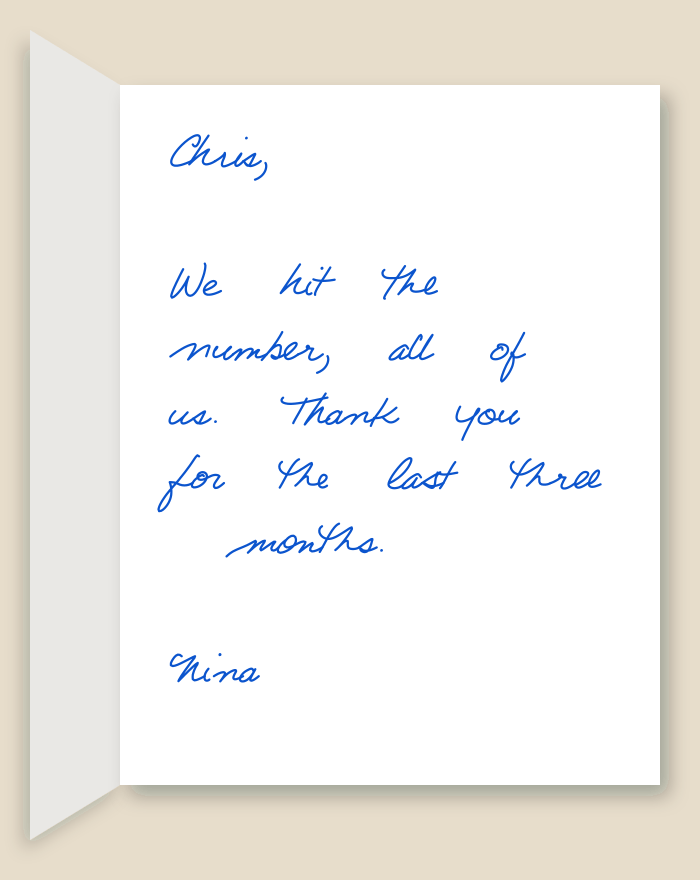 Chris,
We hit the
number, all of
us. Thank you
for the last three
months.
Nina